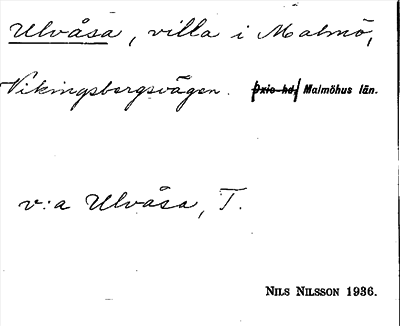 Ulvåsa, villa i Malmö,
Vikingsbergsvägen. Oxie hd, Malmöhus län.
v:a Ulvåsa, T.
NILS NILSSON 1936.